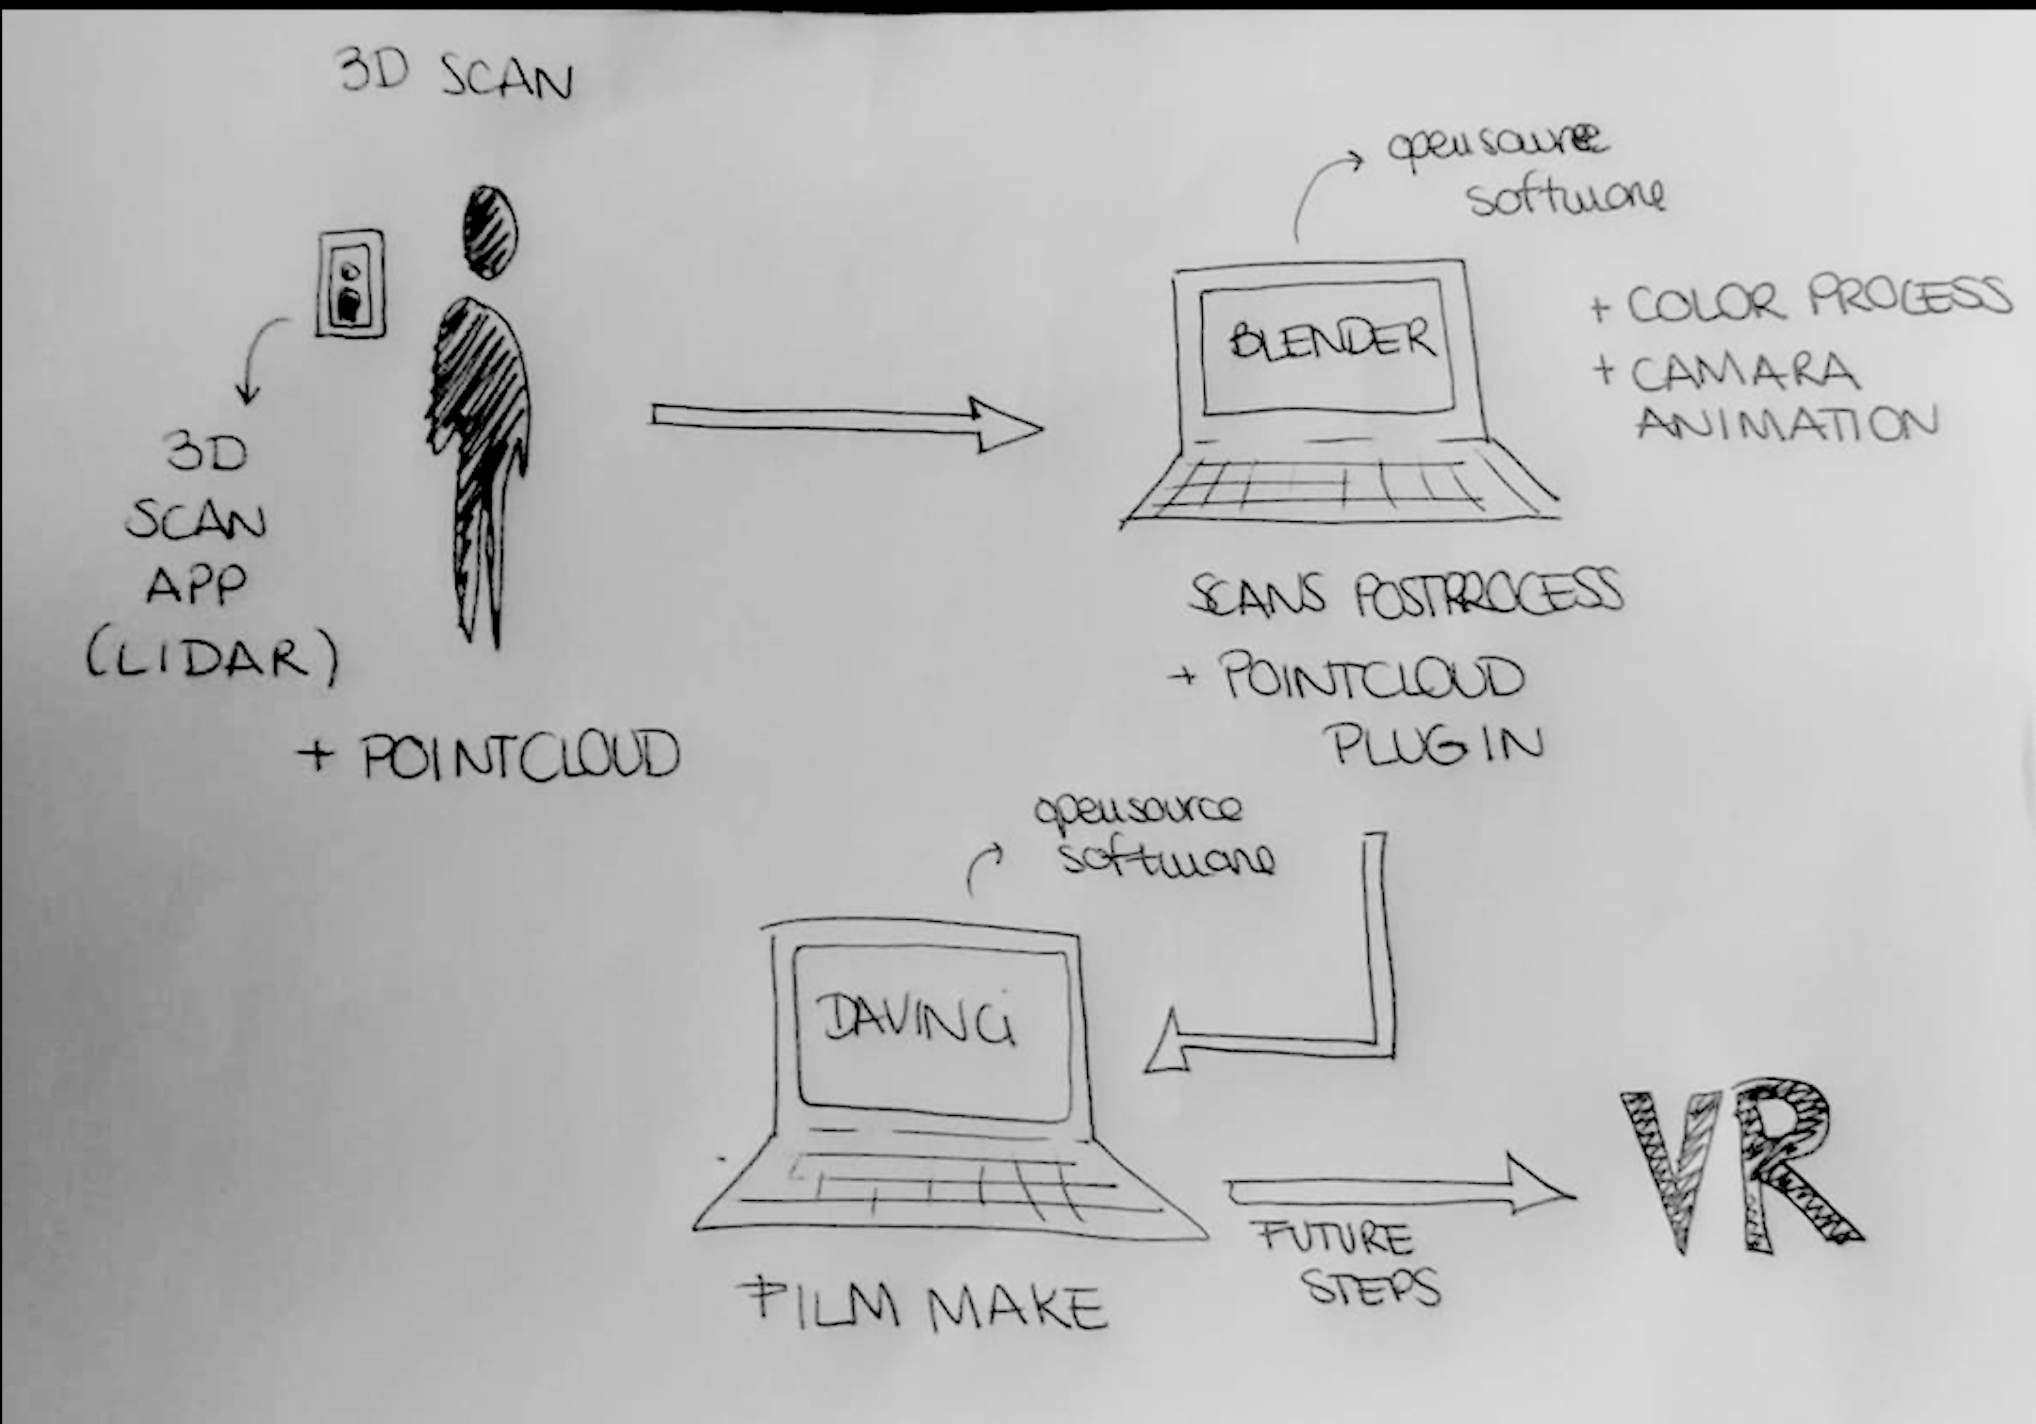 3D SCAN
3D
SCAN
APP
(LIDAR)
+ POINTCLOUD
opensource
software
BLENDER
+ COLOR PROCESS
+ CAMARA
ANIMATION
SCANS POSTPROCESS
+ POINTCLOUD
PLUGIN
opensource
software
DAVINCi
FILM MAKE
FUTURE
STEPS
VR